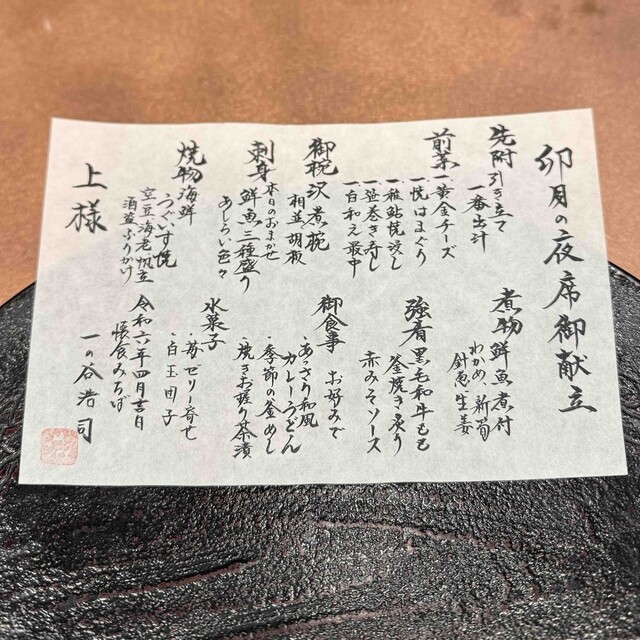 卯月の夜席御献立
先附 引き立て
一番出汁
前菜 一黄金チーズ
一焼はまぐり
一稚鮎焼浸し
一笹巻き寿し
一白和え最中
御椀 沢煮椀
相並胡椒
刺身 本日のおまかせ
鮮魚三種盛り
あしらい色々
焼物 海鮮
うぐいす焼
空豆海老帆立
酒盗ふりかけ
煮物 鮮魚煮付
わかめ、新筍
針葱生姜
強肴 黒毛和牛もも
釜焼き炙り
赤みそソース
御食事 お好みで
・あっさり和風
カレーうどん
・季節の釜めし
・焼きお握り茶漬
水菓子
・苺ゼリー寄せ
・白玉団子
令和六年四月吉日
懐食みちば
一の谷浩司
上様